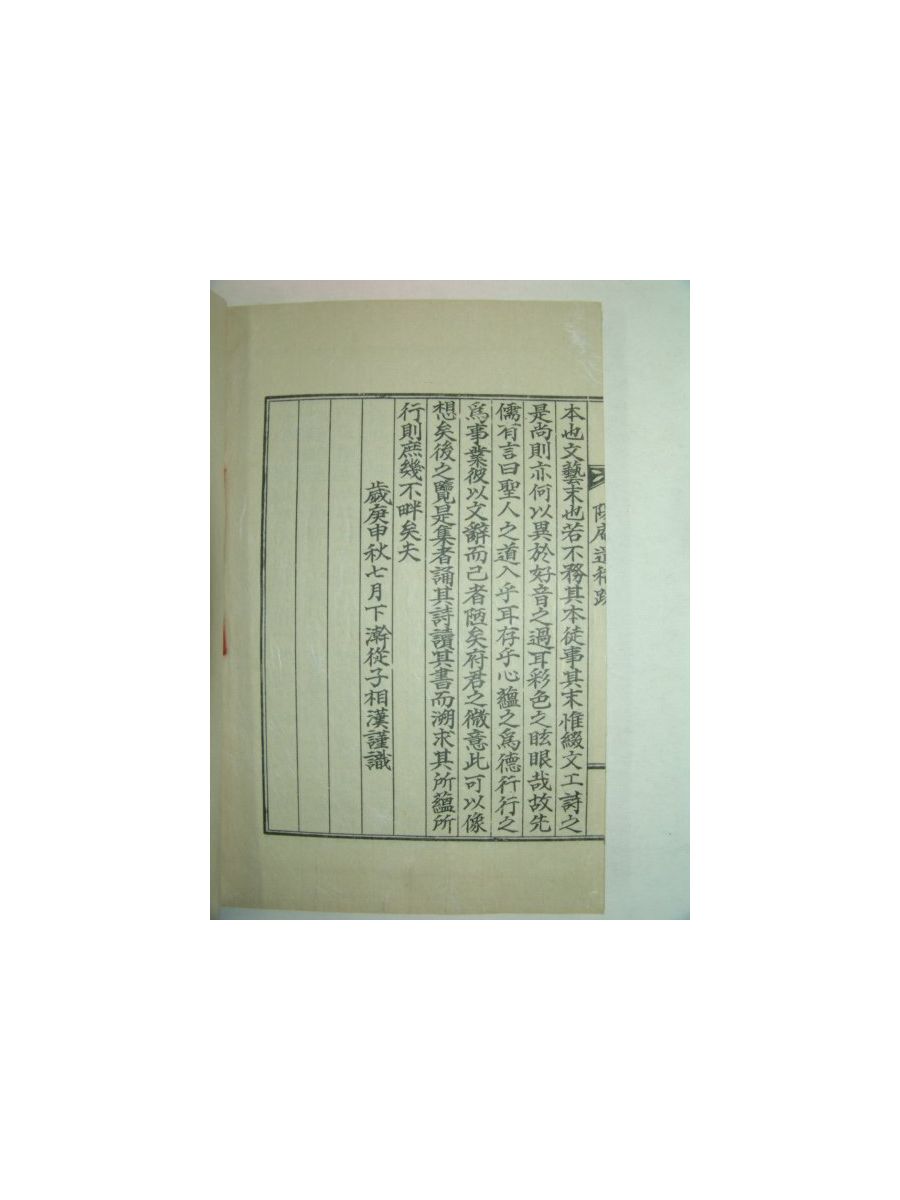 庵遺稿跋
本也文藝末也若不務其本徒事其末惟綴文工詩之
是尚則亦何以異於好音之過耳彩色之眩眼哉故先
儒有言曰聖人之道入乎耳存乎心蘊之爲德行行之
爲事業彼以文辭而已者陋矣府君之微意此可以像
想矣後之覽是集者誦其詩讀其書而溯求其所蘊所
行則庶幾不畔矣夫
歲庚申秋七月下澣從子相漢謹識